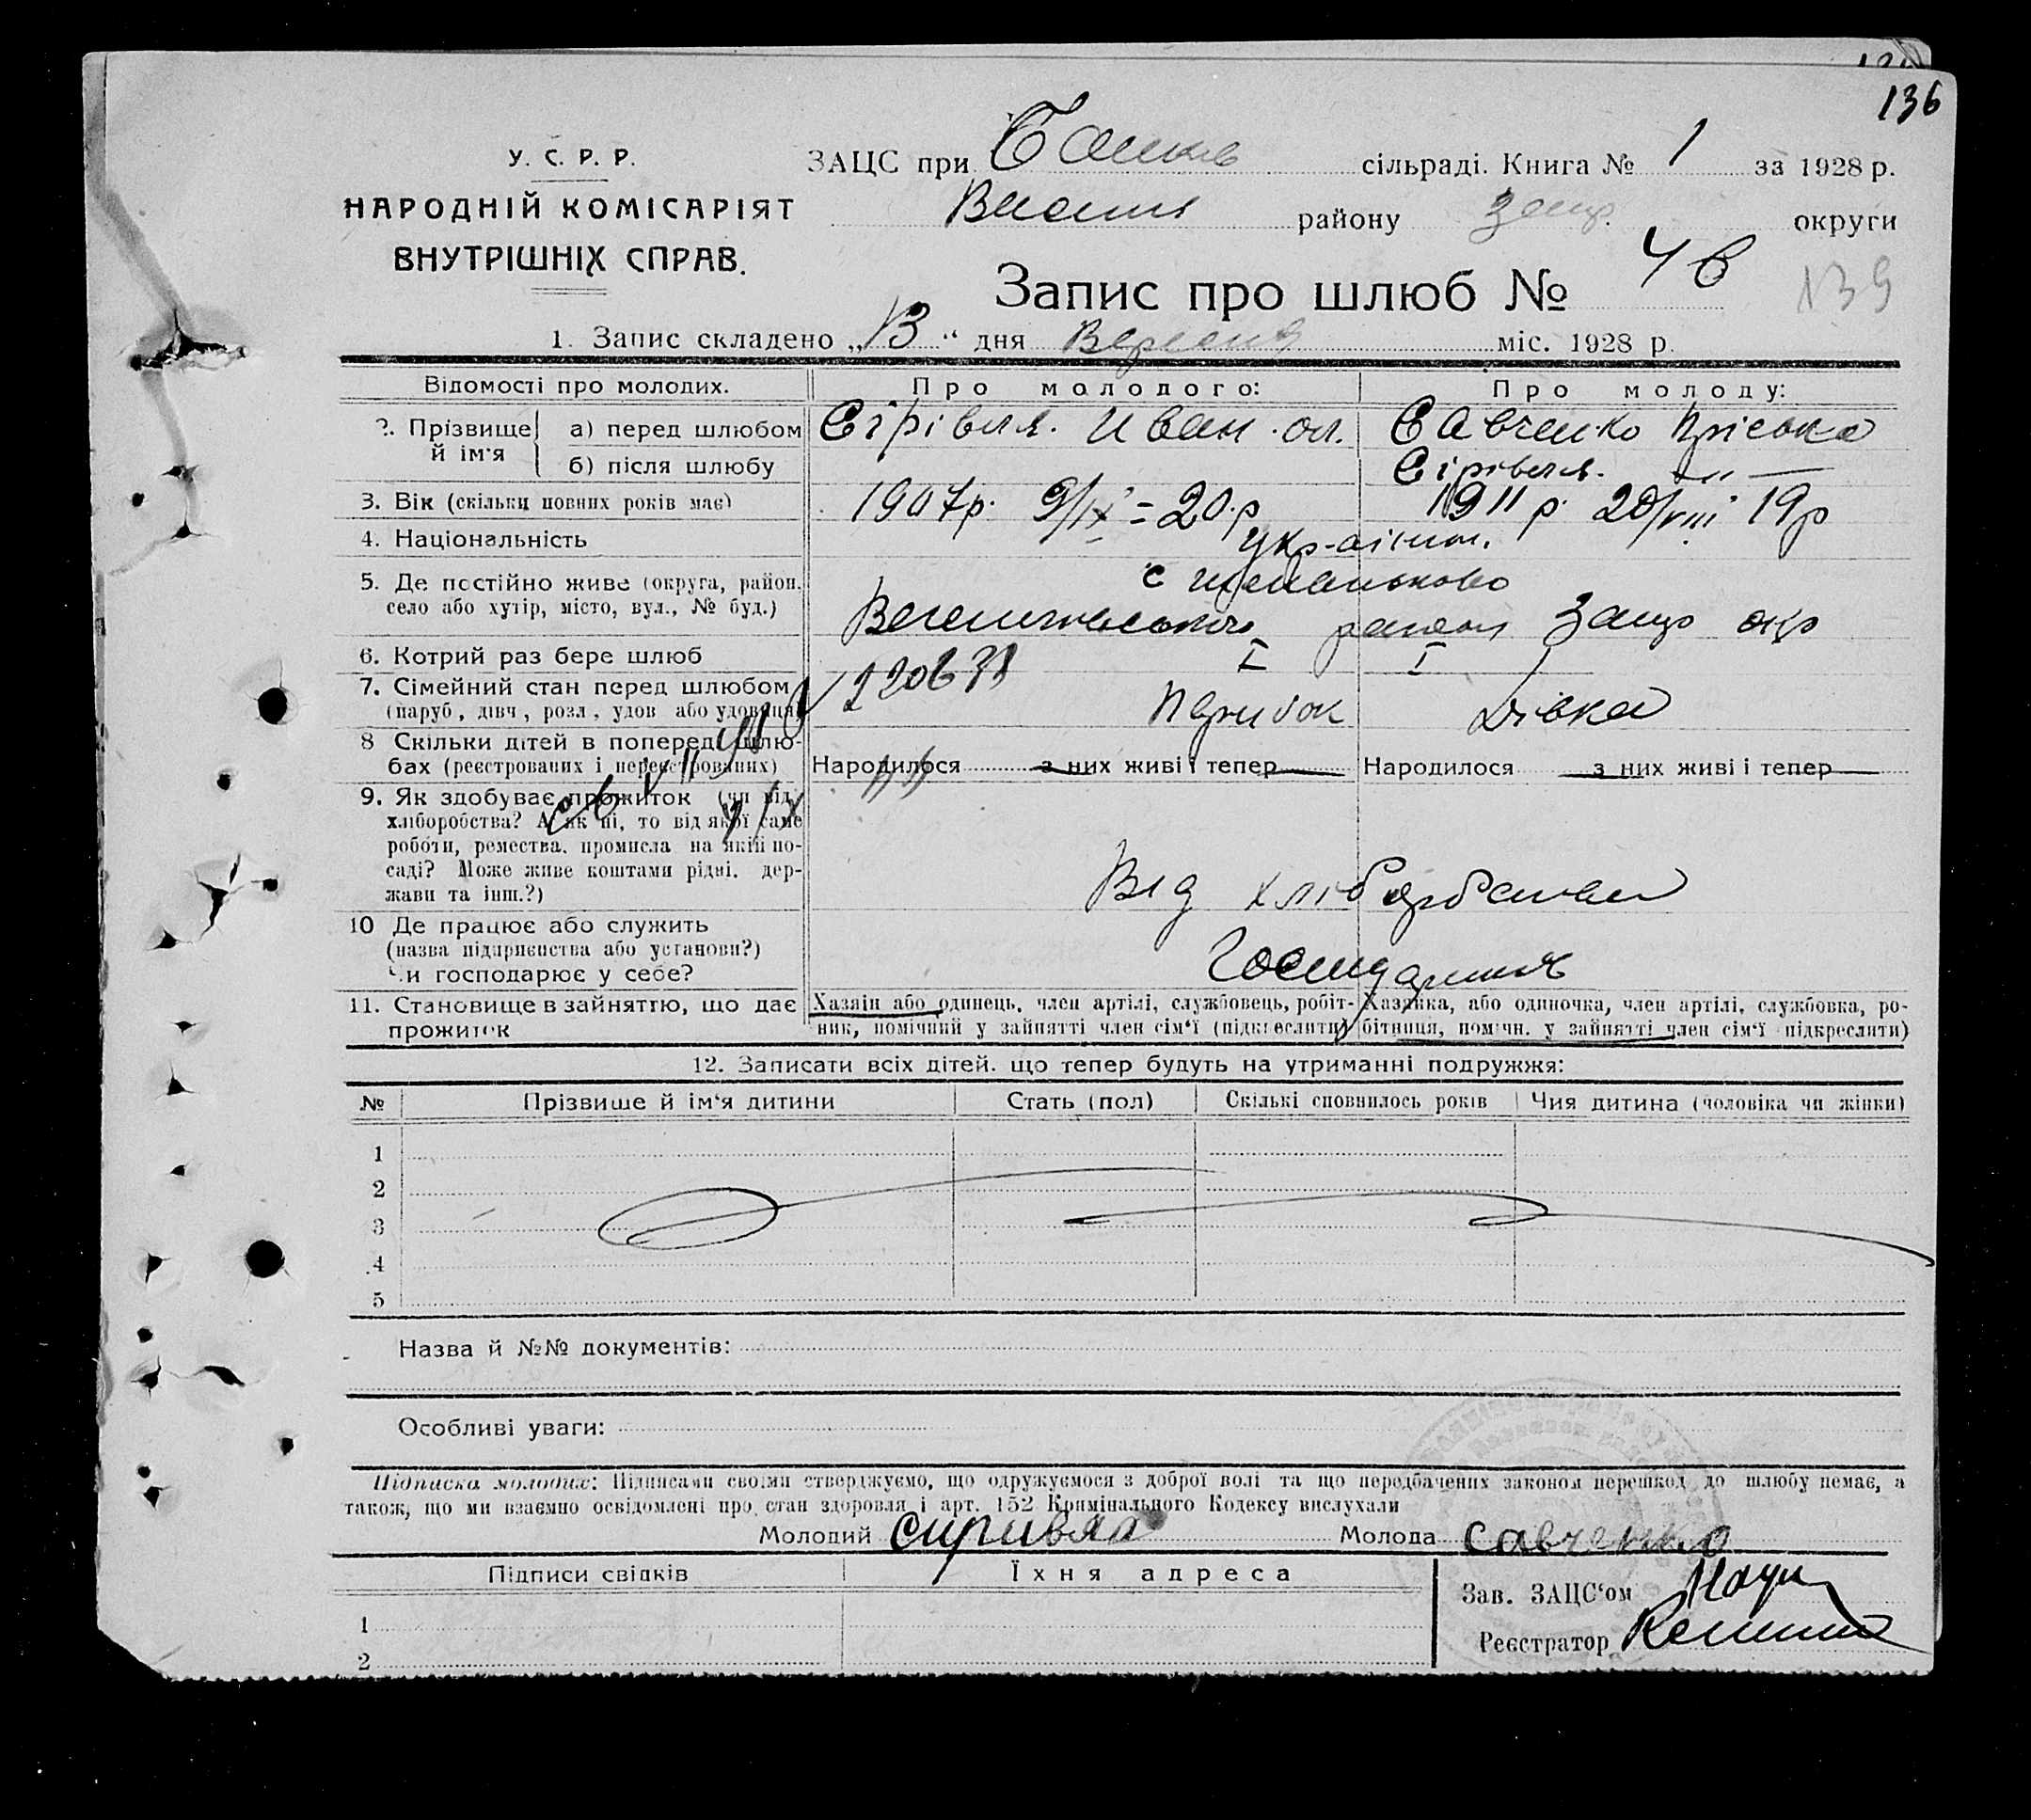 136
У. С. Р. Р.
НАРОДНІЙ КОМІСАРІЯТ
ВНУТРІШНІХ СПРАВ.
ЗАЦС при сільраді. Книга № 1 за 1928 р.
району Запор. округи
Запис про шлюб № 46
139
1. Запис складено „13“ дня Вересня міс. 1928 р.
Відомості про молодих. Про молодого: Про молоду:
2. Прізвище й ім'я
а) перед шлюбом Сірівля. Иван Савченко Пріська
б) після шлюбу Сірівля. —〃—
3. Вік (скільки повних років має) 1907р. 9/IX = 20.р 1911 р. 20/VIII 19р
4. Національність
5. Де постійно живе (округа, район, с
село або хутір, місто, вул., № буд.) Запор окр
6. Котрий раз бере шлюб I I
7. Сімейний стан перед шлюбом
(паруб, дівч, розл, удов або удовиця) Парубок Дівка
8 Скільки дітей в поперед шлю-
бах (реєстрованих і нереєстрованих) Народилося з них живі і тепер Народилося з них живі і тепер
9. Як здобуває прожиток (чи від
хліборобства? А як ні, то від якої саме
роботи, ремества, промисла на якій по-
саді? Може живе коштами рідні, дер-
жави та інш.?) Від хліборобства
10 Де працює або служить
(назва підприєнства або установи?)
Чи господарює у себе?
11. Становище в зайняттю, що дає
прожиток
Хазяін або одинець, член артілі, службовець, робіт-
ник, помічний у зайнятті член сім'ї (підкреслити)
Хазяйка, або одиночка, член артілі, службовка, ро-
бітниця, помічн. у зайнятті член сім'ї підкреслити)
12. Записати всіх дітей. що тепер будуть на утриманні подружжя:
№ Прізвише й ім'я дитини Стать (пол) Скількі сповнилось років Чия дитина (чоловіка чи жінки)
1
2
3
4
5
Назва й №№ документів:
Особливі уваги:
Підписка молодих: Підписами своїми стверджуємо, що одружуємося з доброї волі та що передбачених законом перешкод до шлюбу немає, а
також, що ми взаємно освідомлені про стан здоровля і арт. 152 Кримінального Кодексу вислухали
Молодий Сиривля Молода Савченко
Підписи свідків Їхня адреса
Зав. ЗАЦС'ом
Реєстратор
1
2